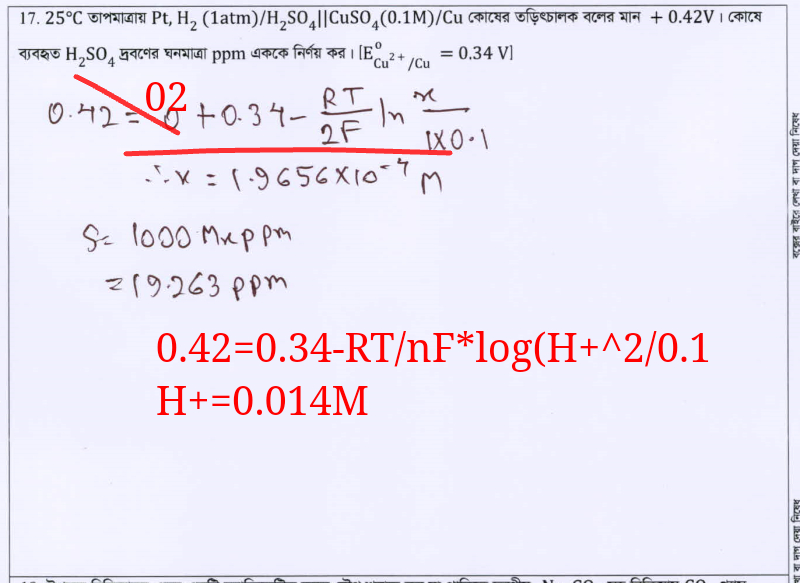 17. 25°C তাপমাত্রায় Pt, H₂ (1atm)/H₂SO₄||CuSO₄(0.1M)/Cu কোষের তড়িৎচালক বলের মান + 0.42V। কোষে
ব্যবহৃত H₂SO₄ দ্রবণের ঘনমাত্রা ppm এককে নির্ণয় কর। [E°Cu²⁺/Cu = 0.34 V]
02
0.42 = 0 + 0.34 - RT/2F ln x/1×0.1
∴ x = 1.9656×10⁻⁴ M
S = 1000 Mx ppm
= 19.263 ppm
0.42=0.34-RT/nF*log(H+^2/0.1
H+=0.014M
বক্সের বাইরে লেখা বা দাগ দেয়া নিষেধ
বা দাগ দেয়া নিষেধ